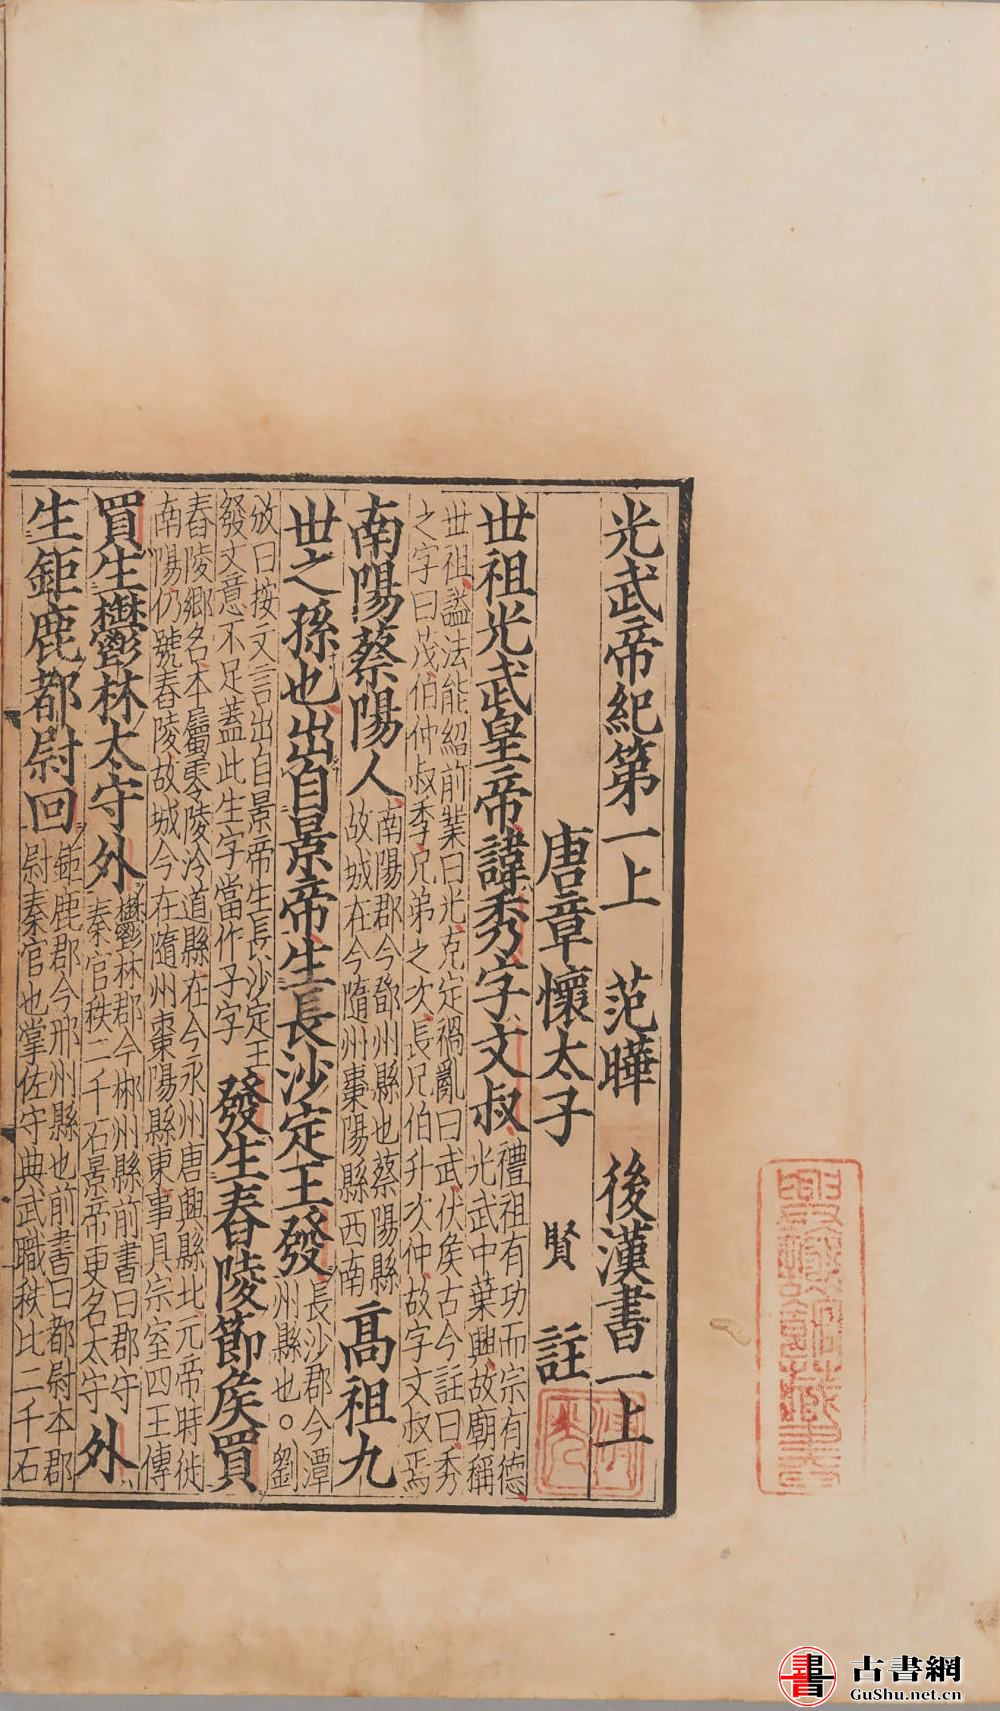 光武帝紀第一上　范曄　後漢書一上
唐章懷太子　賢　註
世祖光武皇帝諱秀字文叔
禮祖有功而宗有德
光武中葉興故廟稱
世祖謚法能紹前業曰光克定禍亂曰武伏侯古今註曰秀
之字曰茂伯仲叔季兄弟之次長兄伯升次仲故字文叔焉
南陽蔡陽人
南陽郡今鄧州縣也蔡陽縣
故城在今隨州棗陽縣西南
高祖九
世之孫也出自景帝生長沙定王發
長沙郡今潭
州縣也○劉
攽曰按文言出自景帝生長沙定王
發文意不足蓋此生字當作子字
發生舂陵節侯買
舂陵鄉名本屬零陵冷道縣在今永州唐興縣北元帝時徙
南陽仍號舂陵故城今在隨州棗陽縣東事具宗室四王傳
買生鬱林太守外
鬱林郡今郴州縣前書曰郡守
秦官秩二千石景帝更名太守
外
生鉅鹿都尉回
鉅鹿郡今邢州縣也前書曰都尉本郡
尉秦官也掌佐守典武職秩比二千石
書
古書網
GuShu.net.cn